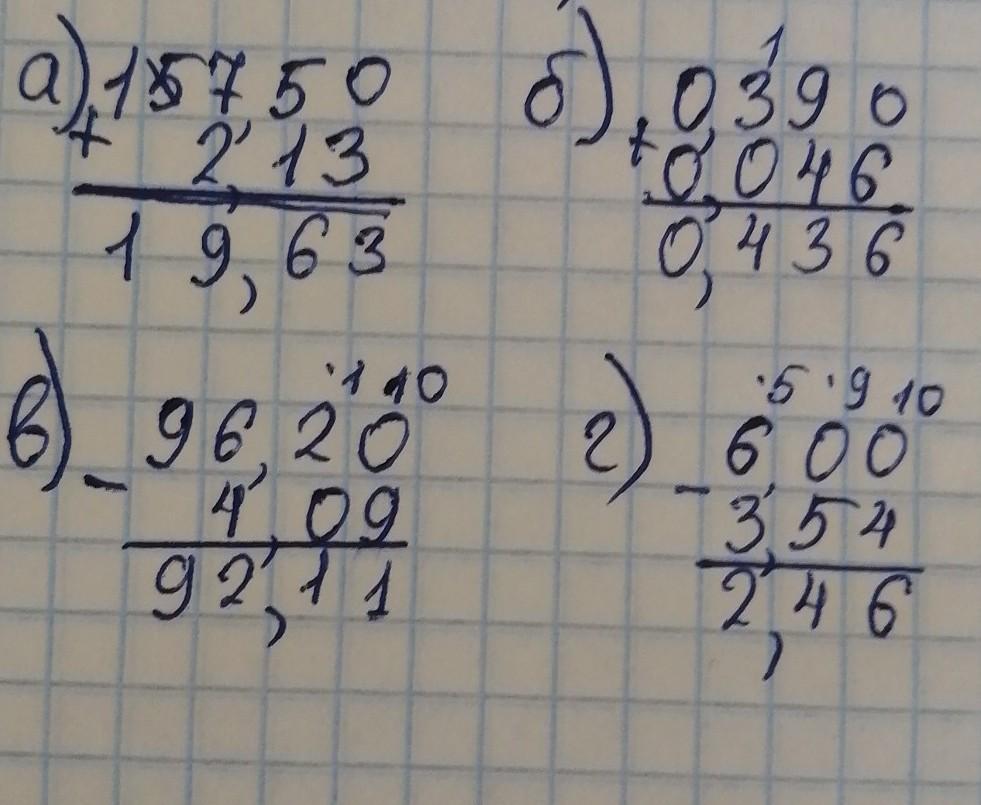 а) 157,50
+ 2,13
19,63
б) 1
0,390
+ 0,046
0,436
в) ·1 10
96,20
- 4,09
92,11
г) ·5 ·9 10
6,00
- 3,54
2,46